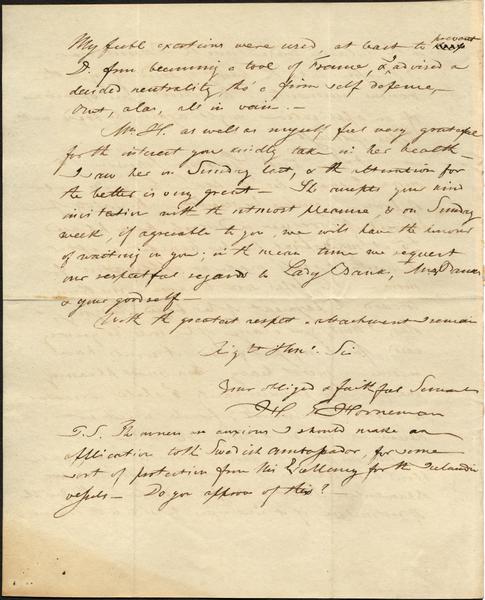 prevent
My feeble exertions were used, at least to
D. from becoming a tool of France, & advised a
decided neutrality, tho' a firm self defense,
but, alas, all in vain. —
Mrs H. as well as myself feel very grateful
for the interest you kindly take in her health —
I saw her on Sunday last, & the alteration for
the better is very great — She accepts your kind
invitation with the utmost pleasure, & on Sunday
week, if agreeable to you, we will have the honour
of waiting on you; in the mean time we request
our respectful regards to Lady Banks, Mrs Banks
& your goodself —
With the greatest respect & attachment I remain
Right Honl. Sir
Your obliged & faithful Servant
H Horneman
P.S. The owners are anxious I should make an
application to the Swedish Ambassador, for some
sort of protection from his Excellency for the Icelandic
vessels — Do you approve of this? —